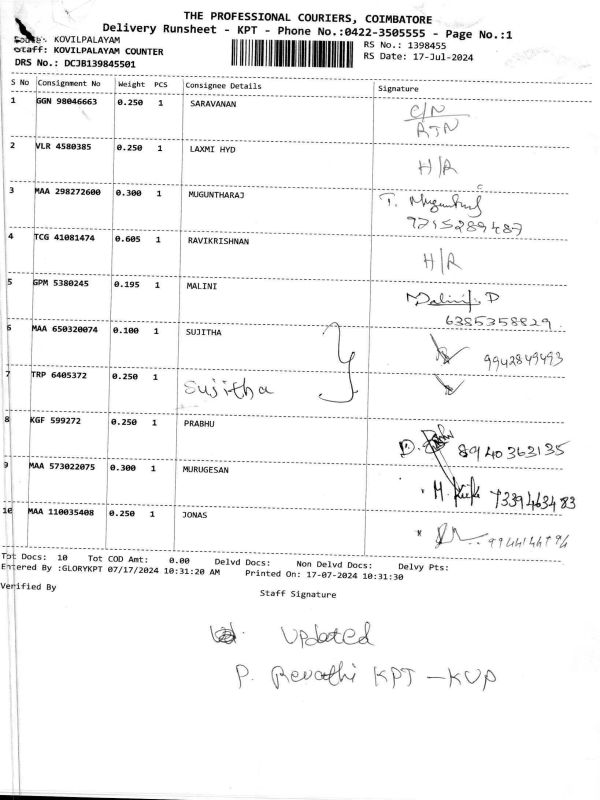 THE PROFESSIONAL COURIERS, COIMBATORE
Delivery Runsheet - KPT - Phone No.:0422-3505555 - Page No.:1
KOVILPALAYAM
Staff: KOVILPALAYAM COUNTER
DRS No.: DCJB139845501
RS No.: 1398455
RS Date: 17-Jul-2024
S No Consignment No Weight PCS Consignee Details Signature
1 GGN 98046663 0.250 1 SARAVANAN C/N
RTN
2 VLR 4580385 0.250 1 LAXMI HYD H/R
3 MAA 298272600 0.300 1 MUGUNTHARAJ T.
9715289487
4 TCG 41081474 0.605 1 RAVIKRISHNAN H/R
5 GPM 5380245 0.195 1 MALINI Malini D
6385358829
6 MAA 650320074 0.100 1 SUJITHA 9942849493
7 TRP 6405372 0.250 1 Sujitha
8 KGF 599272 0.250 1 PRABHU D. 8940363135
9 MAA 573022075 0.300 1 MURUGESAN M. 7339463483
10 MAA 110035408 0.250 1 JONAS
Tot Docs: 10 Tot COD Amt: 0.00 Delvd Docs: Non Delvd Docs: Delvy Pts:
Entered By :GLORYKPT 07/17/2024 10:31:20 AM Printed On: 17-07-2024 10:31:30
Verified By Staff Signature
Updated
P. Revathi KPT - KVP